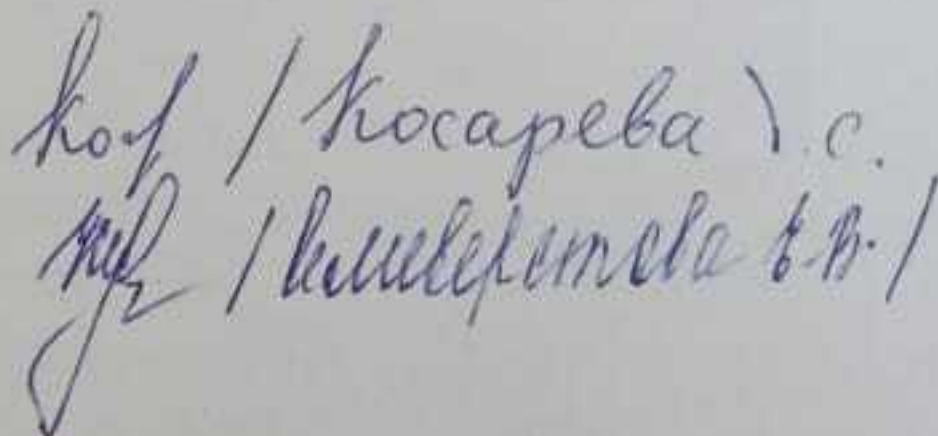 Кос / Косарева \ с.
/ Селиверстова Е.В. /